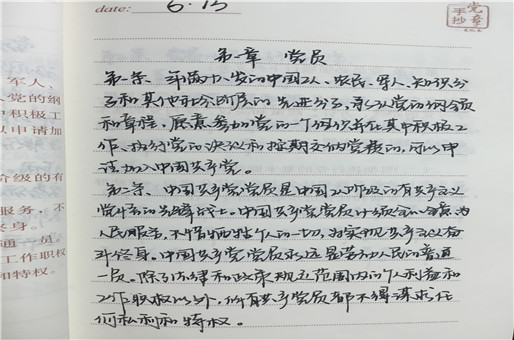 date: 6.15
党章
手抄
第一章 党员
第一条、年满十八岁的中国工人、农民、军人、知识分
子和其他社会阶层的先进分子，承认党的纲领
和章程，愿意参加党的一个组织并在其中积极工
作、执行党的决议和按期交纳党费的，可以申
请加入中国共产党。
第二条、中国共产党党员是中国工人阶级的有共产主义
觉悟的先锋战士。中国共产党党员必须全心全意为
人民服务，不惜牺牲个人的一切，为实现共产主义奋
斗终身。中国共产党党员永远是劳动人民的普通
一员。除了法律和政策规定范围内的个人利益和
工作职权以外，所有共产党员都不得谋求任
何私利和特权。
军人、
党的纲
中积极工
以申请加
阶级的有
服务，不
终身。
通一员。
工作职权
和特权。